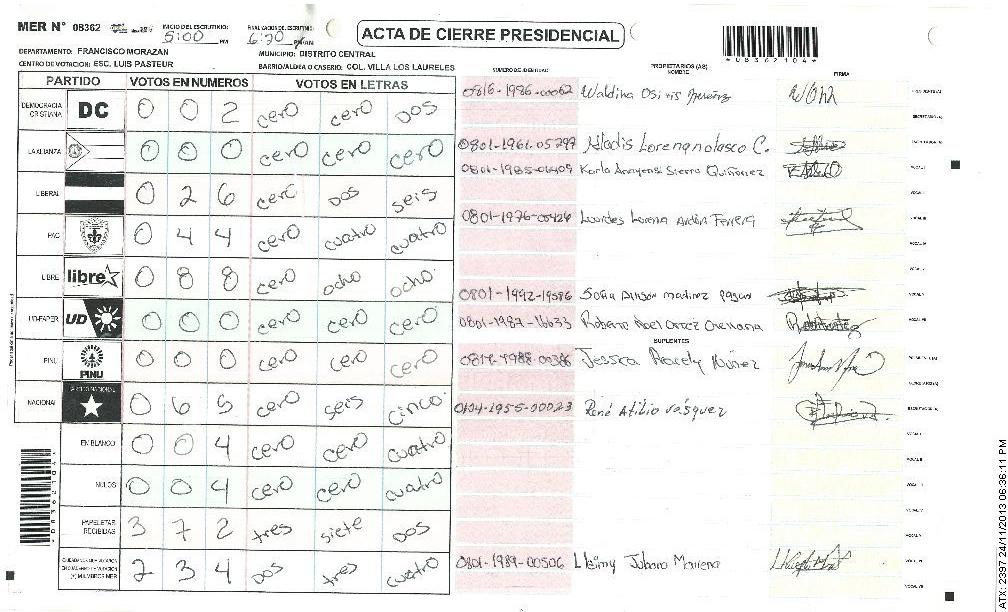 MER N° 08362 INICIO DEL ESCRUTINIO: 5:00 PM FINALIZACION DEL ESCRUTINIO: 6:30 PM/AM ACTA DE CIERRE PRESIDENCIAL
DEPARTAMENTO: FRANCISCO MORAZAN MUNICIPIO: DISTRITO CENTRAL *08362104*
CENTRO DE VOTACION: ESC. LUIS PASTEUR BARRIO/ALDEA O CASERIO: COL. VILLA LOS LAURELES
NUMERO DE IDENTIDAD PROPIETARIOS (AS) NOMBRE FIRMA
PARTIDO VOTOS EN NUMEROS VOTOS EN LETRAS
DEMOCRACIA CRISTIANA DC 0 0 2 cero cero Dos
LA ALIANZA 0 0 0 cero cero cero
LIBERAL 0 2 6 cero Dos seis
PAC 0 4 4 cero cuatro cuatro
LIBRE libre 0 8 8 cero ocho ocho
UD-FAPER UD 0 0 0 cero cero cero
PINU PINU 0 0 0 cero cero cero
NACIONAL PARTIDO NACIONAL 0 6 5 cero seis cinco
EN BLANCO 0 0 4 cero cero cuatro
NULOS 0 0 4 cero cero cuatro
PAPELETAS RECIBIDAS 3 7 2 tres siete Dos
(+) MIEMBROS MER 2 3 4 Dos tres cuatro
0816-1986-00062 Waldina Osiris
0801-1961-05299 Gladis Lorena nolasco C.
0801-1985-06409 Karla Sierra Quiñonez
0801-1976-05426 Lourdes Lorena Ferrera
0801-1992-19586 Sofia
0801-1982-16633 Roberto Noel Ortez Orellana
SUPLENTES
Jessica Aracely Núñez
René Atilio vásquez
0801-1989-00506
*08362104*
ATX: 2397 24/11/2013 06:36:11 PM